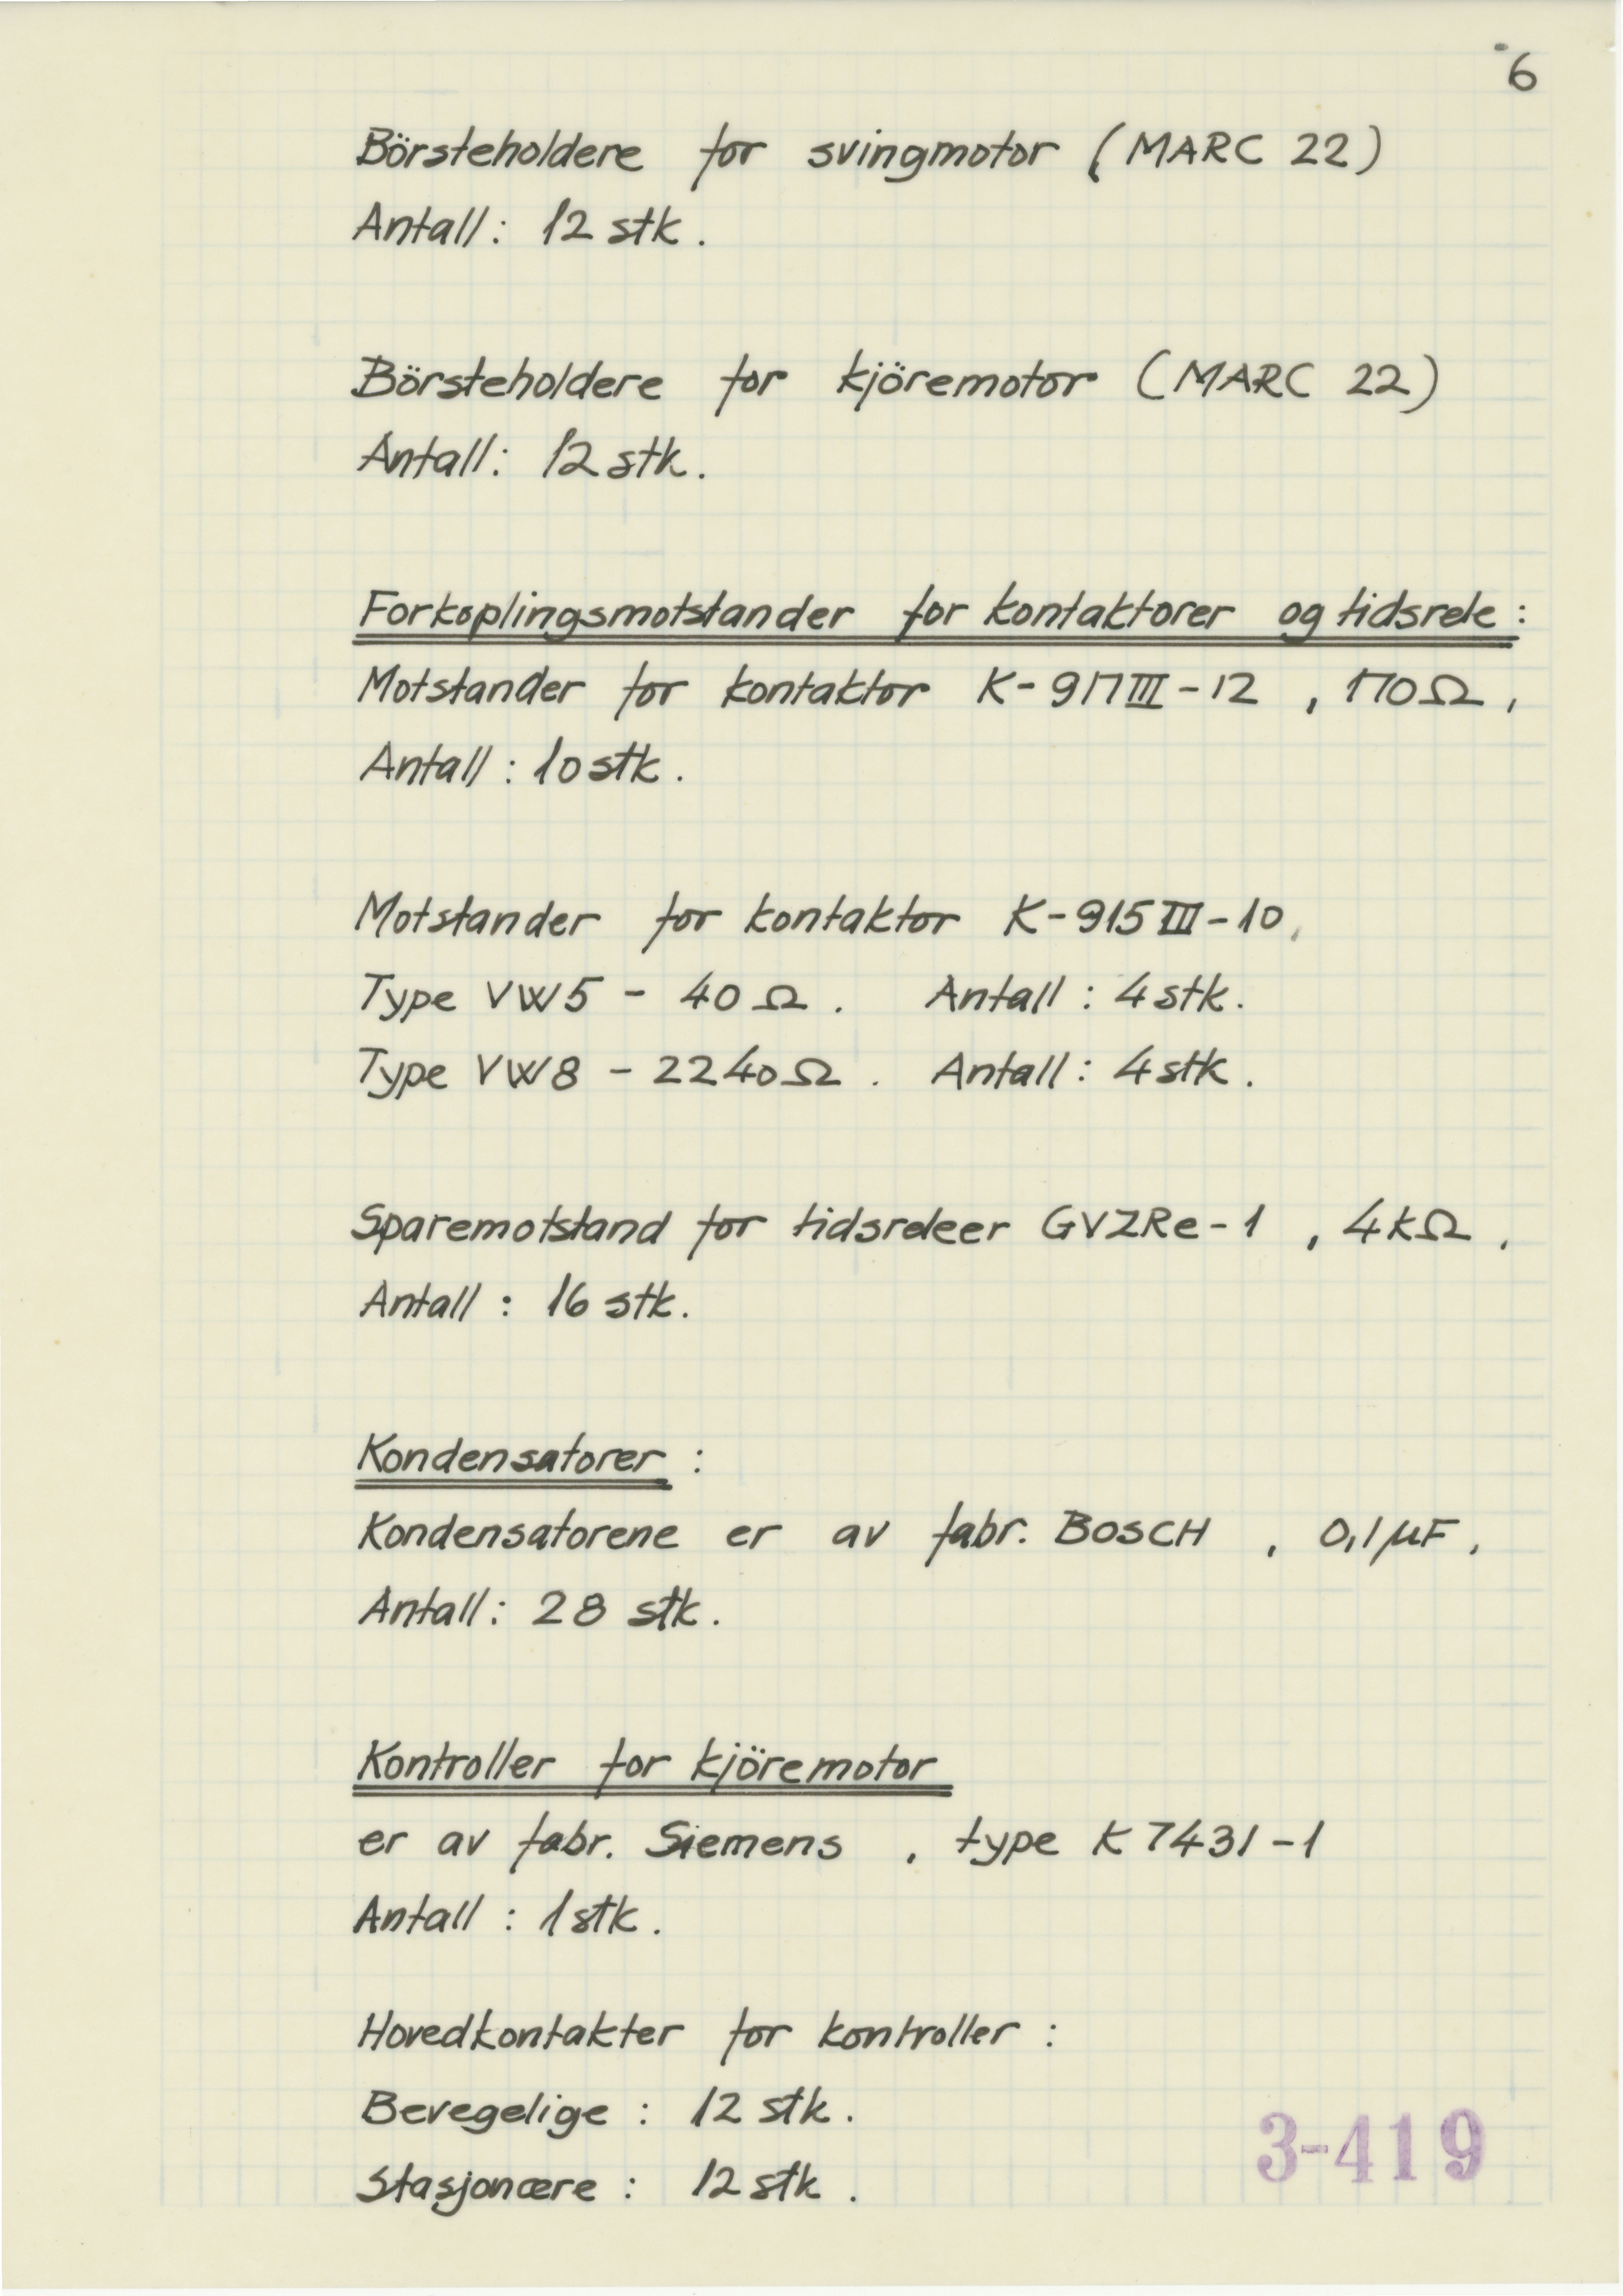 6
Börsteholdere for svingmotor (MARC 22)
Antall: 12 stk.
Börsteholdere for kjöremotor (MARC 22)
Antall: 12 stk.
Forkoplingsmotstander for kontaktorer og tidsrele:
Motstander for kontaktor K-917III-12, 170Ω,
Antall: 10 stk.
Motstander for kontaktor K-915III-10,
Type VW5 - 40Ω. Antall: 4 stk.
Type VW8 - 2240Ω. Antall: 4 stk.
Sparemotstand for tidsreleer GVZRe-1, 4kΩ.
Antall: 16 stk.
Kondensatorer:
Kondensatorene er av fabr. BOSCH, 0,1μF,
Antall: 28 stk.
Kontroller for kjöremotor
er av fabr. Siemens, type K7431-1
Antall: 1 stk.
Hovedkontakter for kontroller:
Bevegelige: 12 stk.
Stasjonære: 12 stk.
3-419